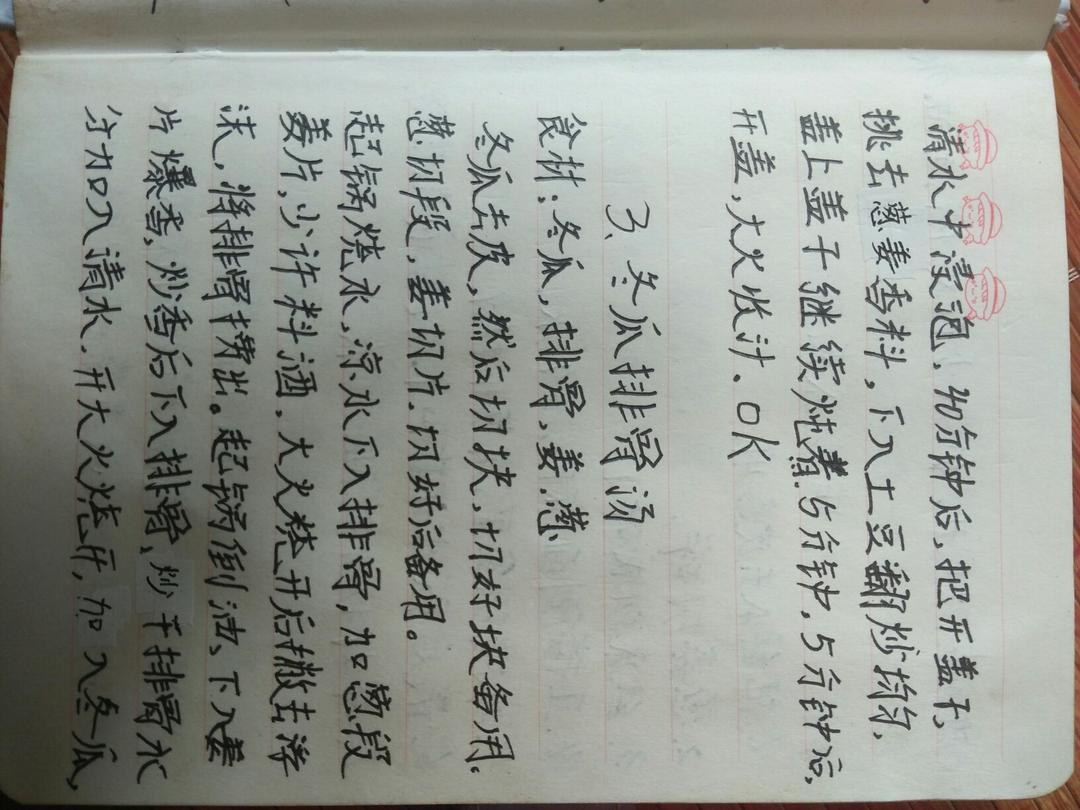 清水中浸泡,40分钟后,把开盖子,
挑去葱姜香料,下入土豆翻炒均匀,
盖上盖子继续炖着5分钟,5分钟后,
开盖,大火收汁。OK
3、冬瓜排骨汤
食材:冬瓜,排骨,姜,葱
冬瓜去皮,然后切块,切好块备用.
葱切段,姜切片.切好后备用。
起锅烧水,凉水下入排骨,加葱段
姜片,少许料酒,大火烧开后撇去浮
沫,将排骨捞出。起锅倒油、下入姜
片爆香,炒香后下入排骨,炒干排骨水
分加入清水.开大火烧开,加入冬瓜,